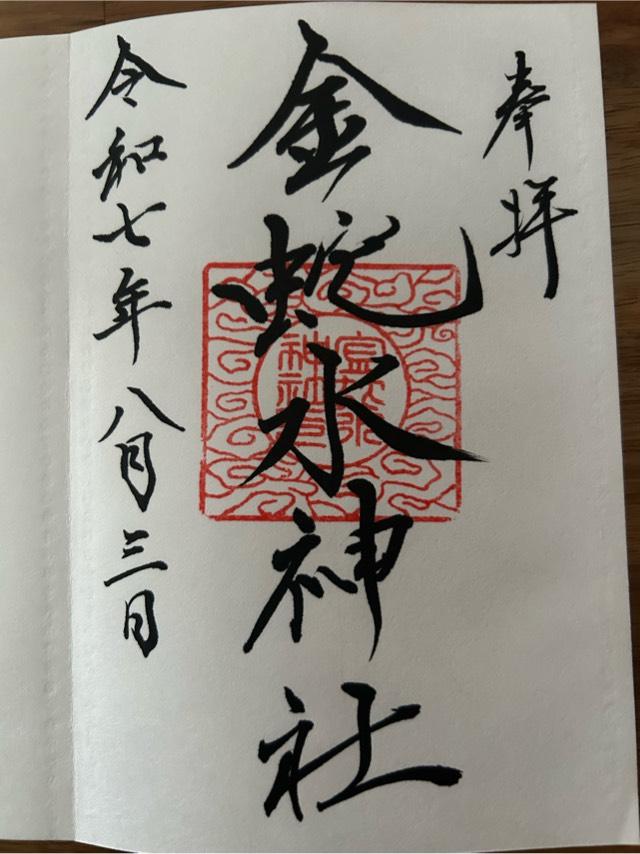 奉拝
金蛇水神社
令和七年八月三日